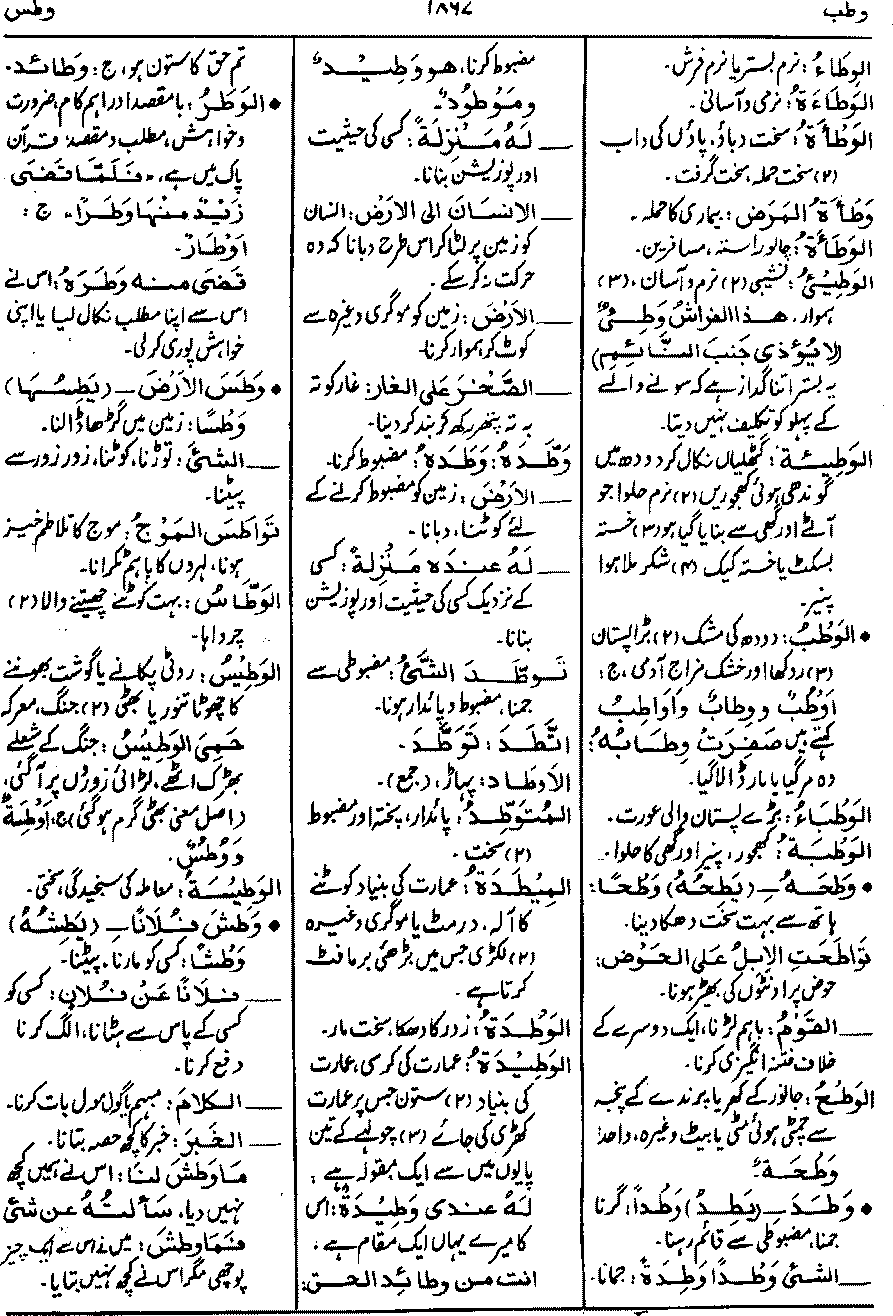 وطب
۱۸۶۷
وطس
الوِطَاءُ: نرم بستر یا نرم فرش۔
الوَطَاءَةُ: نرمی و آسانی۔
الوَطْأَةُ: سخت دباؤ، پاؤں کی داب
(۲) سخت حملہ، سخت گرفت۔
وَطْأَةُ المَرَضِ: بیماری کا حملہ۔
الوَطَأَةُ: چالو راستہ، مسافرین۔
الوَطِیْئُ: نشیبی (۲) نرم و آسان، (۳)
ہموار۔ هذا الفراش وَطِیْئٌ
(لا یُؤذی جَنبَ النَّائِمِ)
یہ بستر اتنا گداز ہے کہ سونے والے
کے پہلو کو تکلیف نہیں دیتا۔
الوَطِیئَة: گٹھلیاں نکال کر دودھ میں
گوندھی ہوئی کھجوریں (۲) نرم حلوا جو
آٹے اور گھی سے بنایا گیا ہو (۳) خستہ
بسکٹ یا خستہ کیک (۴) شکر ملا ہوا
پنیر۔
• الوَطْبُ: دودھ کی مشک (۲) بڑا پستان
(۳) روکھا اور خشک مزاج آدمی، ج:
اَوْطُبٌ ووِطابٌ واَوَاطِبُ
کہتے ہیں صَفِرَتْ وِطَابُہُ:
وہ مر گیا یا مار ڈالا گیا۔
الوَطْبَاءُ: بڑے پستان والی عورت۔
الوَطْبَةُ: کھجور، پنیر اور گھی کا حلوا۔
• وَطَحَهُ ـِ (یَطِحُهُ) وَطْحًا:
ہاتھ سے بہت سخت دھکا دینا۔
تَوَاطَحَتِ الإبِلُ علی الحَوْضِ:
حوض پر اونٹوں کی بھیڑ ہونا۔
ــــ القَوْمُ: باہم لڑنا، ایک دوسرے کے
خلاف فتنہ انگیزی کرنا۔
الوَطْحُ: جانور کے کھر یا پرندے کے پنجہ
سے چمٹی ہوئی مٹی یا بیٹ وغیرہ، واحد:
وَطْحَةٌ۔
• وَطَدَ ـِ (یَطِدُ) وَطْداً: گرنا
جمنا، مضبوطی سے قائم رہنا۔
ــــ الشیئَ وَطْدًا وَطِدَةً: جمانا۔
مضبوط کرنا، هو وَطِیْدٌ
ومَوْطُوْدٌ۔
ــــ لَهُ مَنْزِلَةً: کسی کی حیثیت
اور پوزیشن بنانا۔
ــــ الإنسانَ الی الارْضِ: انسان
کو زمین پر لٹا کر اس طرح دبانا کہ وہ
حرکت نہ کر سکے۔
ــــ الارْضَ: زمین کو موگری وغیرہ سے
کوٹ کر ہموار کرنا۔
ــــ الصَّخْرَ علی الغارِ: غار کو تہ
بہ تہ پتھر رکھ کر بند کر دینا۔
وَطَّدَهُ: وَطَدَهُ: مضبوط کرنا۔
ــــ الارْضَ: زمین کو مضبوط کرنے کے
لئے کوٹنا، دبانا۔
ــــ لَهُ عنده مَنْزِلةً: کسی
کے نزدیک کسی کی حیثیت اور پوزیشن
بنانا۔
تَوَطَّدَ الشَّیْئُ: مضبوطی سے
جمنا، مضبوط و پائدار ہونا۔
اتَّطَدَ: تَوَطَّدَ۔
الأوطاد: پہاڑ، (جمع)۔
المُتَوَطِّدُ: پائدار، پختہ اور مضبوط
(۲) سخت۔
المِیْطَدَةُ: عمارت کی بنیاد کوٹنے
کا آلہ، درمٹ یا موگری وغیرہ
(۲) لکڑی جس میں بڑھئی برما فٹ
کرتا ہے۔
الوَطْدَةُ: زور کا دھکا، سخت مار۔
الوَطِیْدَةُ: عمارت کی کرسی، عمارت
کی بنیاد (۲) ستون جس پر عمارت
کھڑی کی جائے (۳) چولہے کے تین
پایوں میں سے ایک مقولہ ہے:
لَهُ عندی وَطِیْدَةٌ: اس
کا میرے یہاں ایک مقام ہے:
انت من وطائد الحق:
تم حق کا ستون ہو، ج: وَطَائد۔
• الوَطَرُ: بامقصد اور اہم کام، ضرورت
وخواہش، مطلب و مقصد: قرآن
پاک میں ہے، «فَلَمَّا قَضَی
زَیْدٌ مِنْهَا وَطَرًا» ج:
اَوْطَارٌ۔
قَضَی منه وَطَرَهُ: اس نے
اس سے اپنا مطلب نکال لیا یا اپنی
خواہش پوری کر لی۔
• وَطَسَ الارْضَ ـِ (یَطِسُهَا)
وَطْسًا: زمین میں گڑھا ڈالنا۔
ــــ الشیئَ: توڑنا، کوٹنا، زور زور سے
پیٹنا۔
تَوَاطَسَ المَوْجُ: موج کا تلاطم خیز
ہونا، لہروں کا باہم ٹکرانا۔
الوَطَّاسُ: بہت کوٹنے چھیتنے والا (۲)
چرواہا۔
الوَطِیْسُ: روٹی پکانے یا گوشت بھوننے
کا چھوٹا تنور یا بھٹی (۲) جنگ، معرکہ
حَمِیَ الوَطِیْسُ: جنگ کے شعلے
بھڑک اٹھے، لڑائی زوروں پر آ گئی،
(اصل معنی بھٹی گرم ہو گئی) ج: اَوْطِسَةٌ
ووُطُسٌ۔
الوَطِیْسَةُ: معاملہ کی سنجیدگی، سختی۔
• وَطَشَ فُلَانًا ـِ (یَطِشُهُ)
وَطْشًا: کسی کو مارنا، پیٹنا۔
ــــ فلانًا عَنْ فُلانٍ: کسی کو
کسی کے پاس سے ہٹانا، الگ کرنا
دفع کرنا۔
ــــ الکلامَ: مبہم یا گول مول بات کرنا۔
ــــ الخَبَرَ: خبر کا کچھ حصہ بتانا۔
مَا وَطَشَ لنا: اس نے ہمیں کچھ
نہیں دیا، سَألْتُهُ عن شئ
فَمَا وَطَشَ: میں نے اس سے ایک چیز
پوچھی مگر اس نے کچھ نہیں بتایا۔